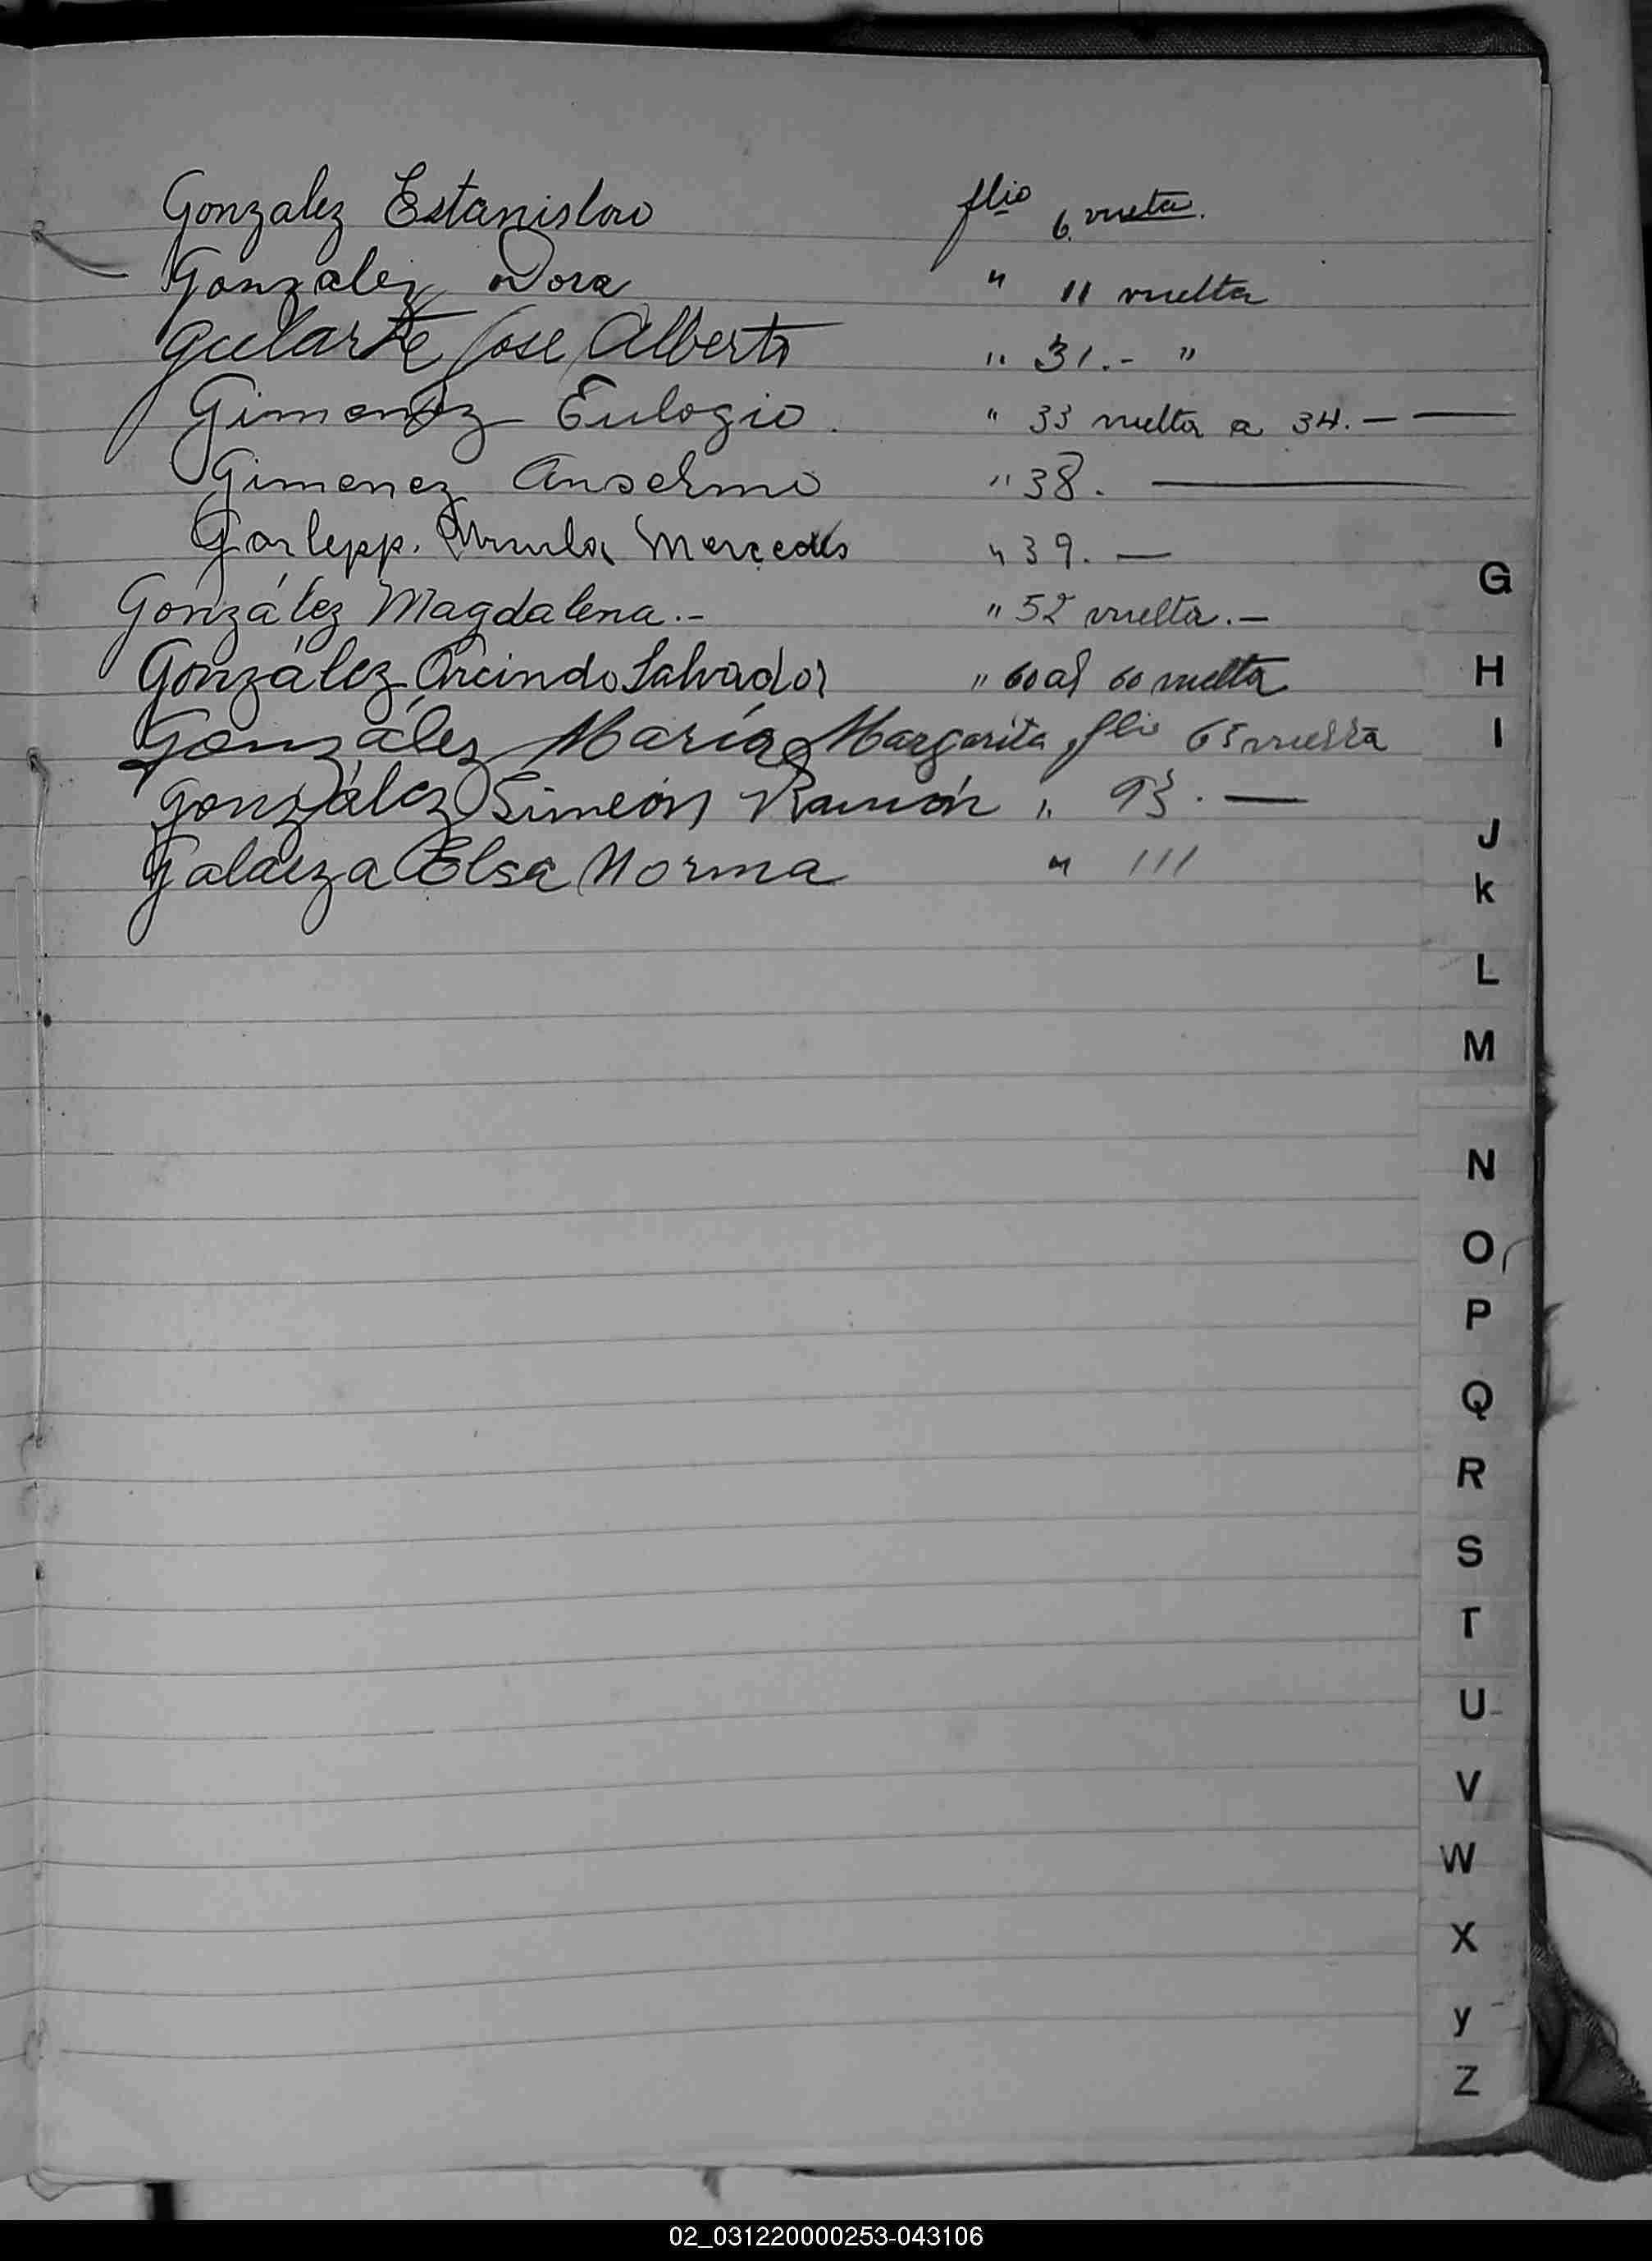 Gonzalez Estanislao flio 6 vuelta.
Gonzalez Dora " 11 vuelta
Gularte Jose Alberto " 31.- "
Gimenez Eulogio. " 33 vuelta a 34.- —
Gimenez Anselmo " 38. —
Garlepp. Ursula Mercedes " 39. —
González Magdalena.- " 52 vuelta.-
González Orcindo Salvador " 60 al 60 vuelta
González María Margarita flio 65 vuelta
González Simeón Ramón " 93. —
Galarza Elsa Norma " 111
G
H
I
J
k
L
M
N
O
P
Q
R
S
T
U
V
W
X
y
Z
02_031220000253-043106